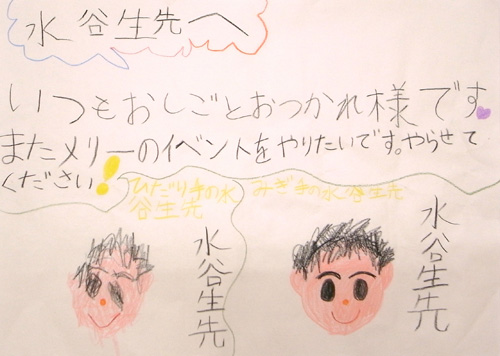 水谷生先へ
いつもおしごとおつかれ様です
またメリーのイベントをやりたいです。やらせて
ください!
ひだり手の水
谷生先
水谷生先
みぎ手の水谷生先
水谷生先